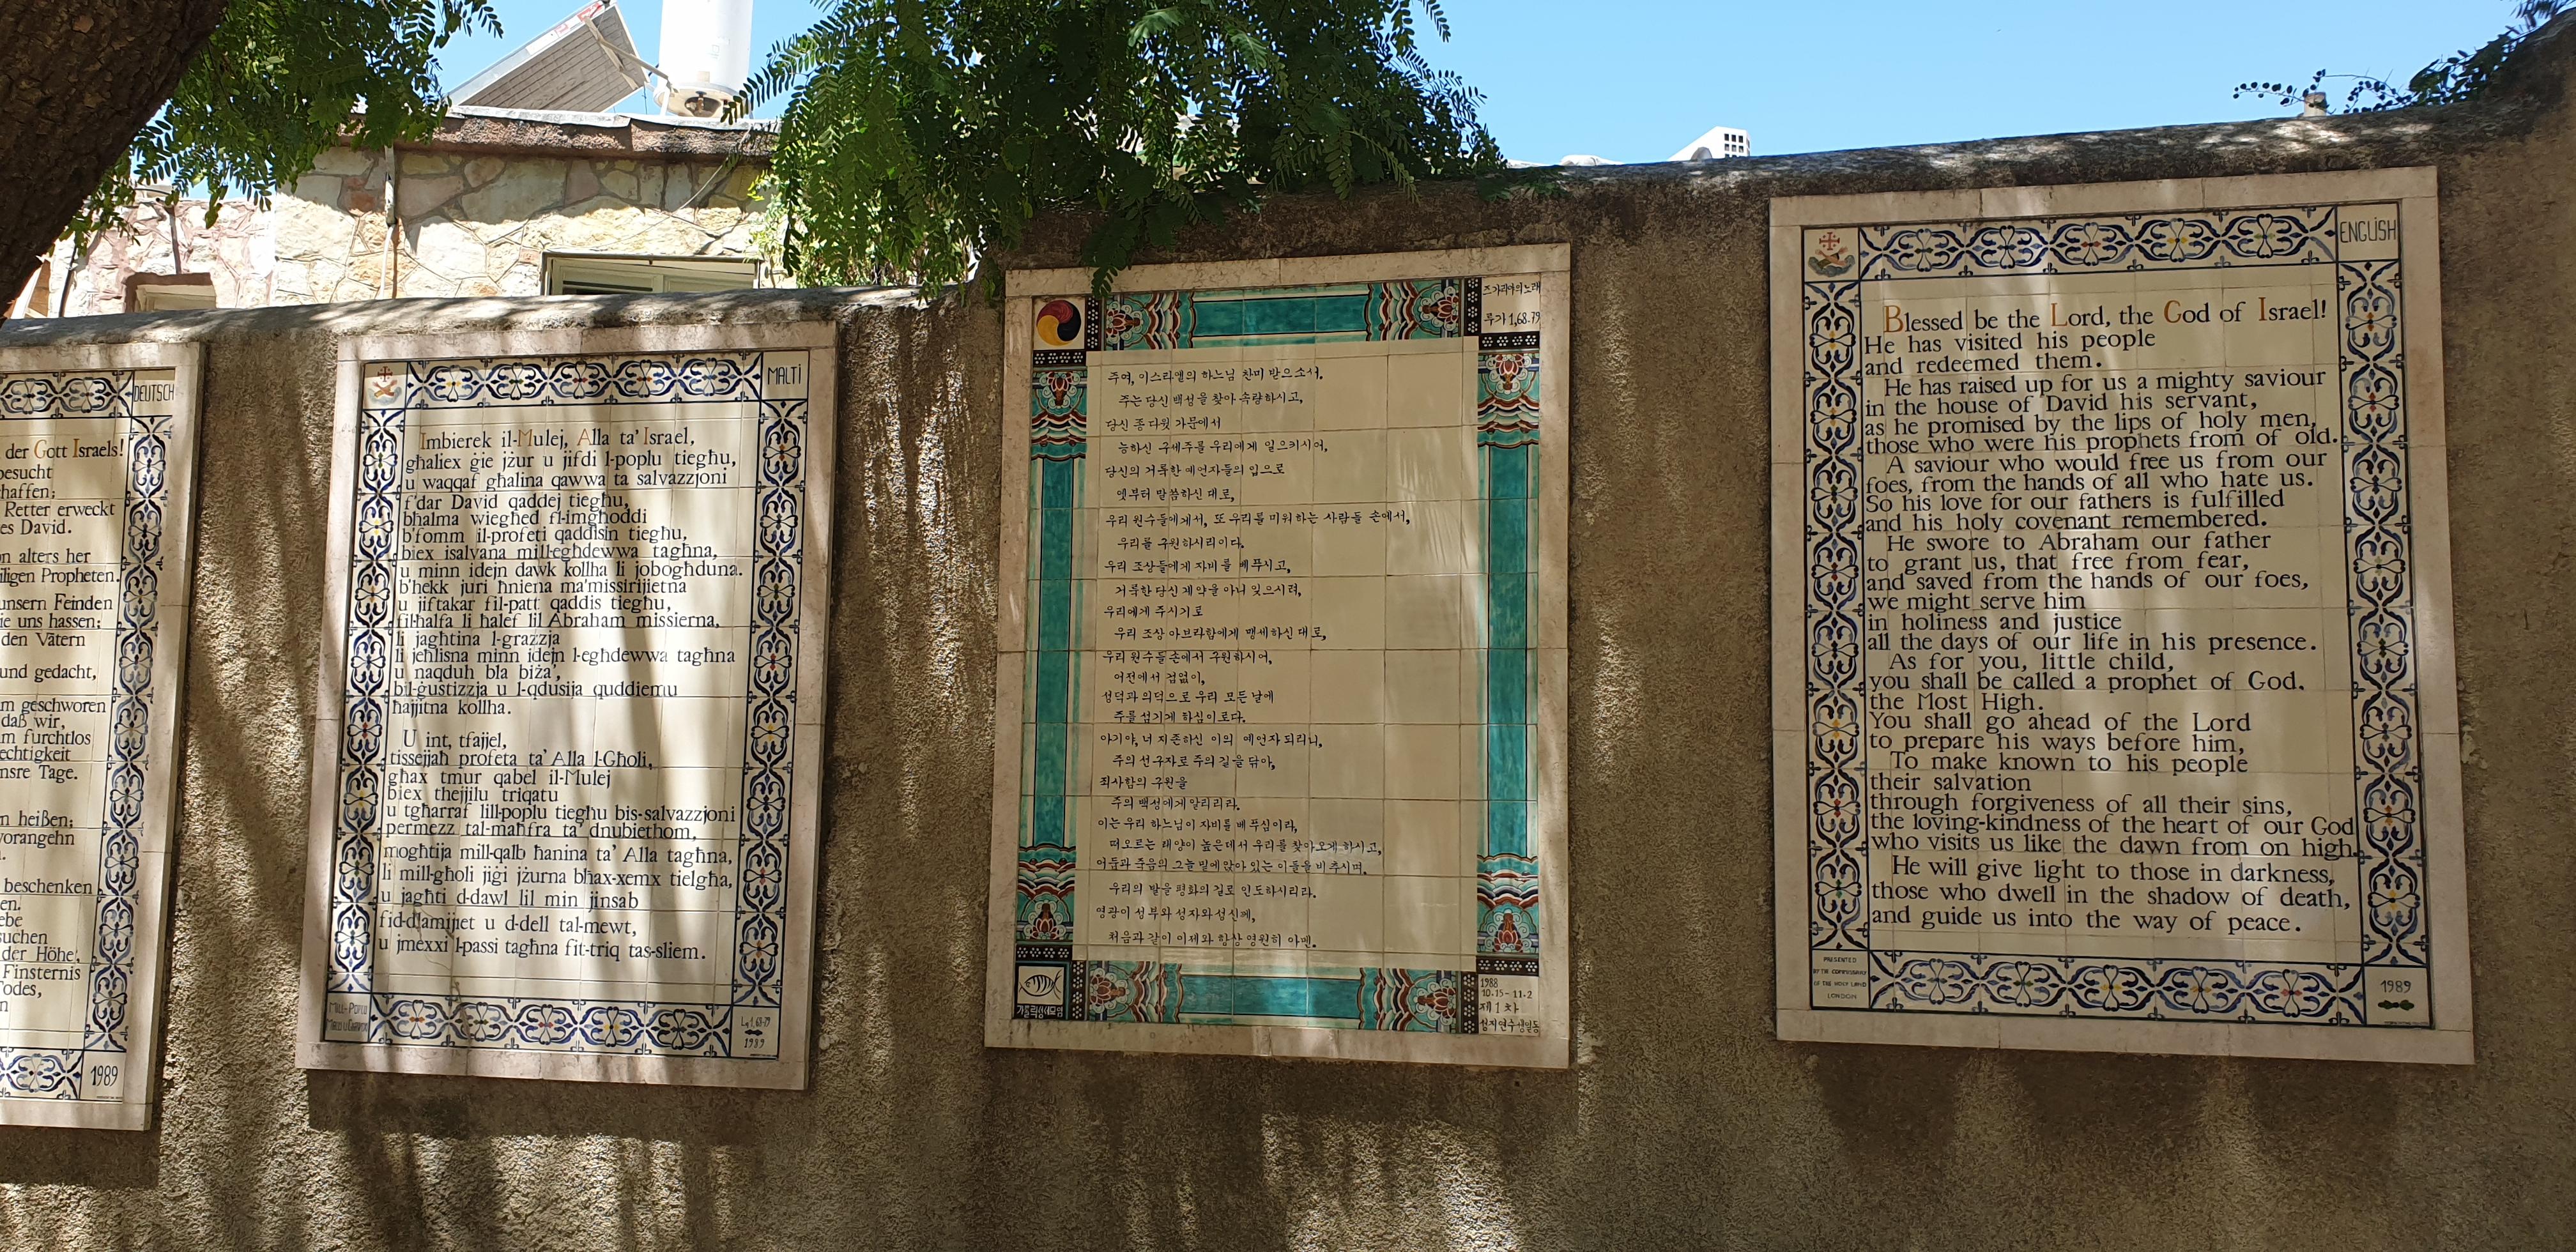 DEUTSCH
der Gott Israels!
besucht
haffen;
Retter erweckt
es David.
n alters her
iligen Propheten.
unsern Feinden
ie uns hassen;
den Vätern
und gedacht,
m geschworen
daß wir,
m furchtlos
echtigkeit
nsre Tage.
n heißen;
vorangehn
beschenken
en.
ebe
suchen
der Höhe,
Finsternis
Todes,
n
1989
MALTI
Imbierek il-Mulej, Alla ta' Israel,
għaliex ġie jżur u jifdi l-poplu tiegħu,
u waqqaf għalina qawwa ta salvazzjoni
f'dar David qaddej tiegħu,
bħalma wiegħed fl-imgħoddi
b'fomm il-profeti qaddisin tiegħu,
biex isalvana mill-egħdewwa tagħna,
u minn idejn dawk kollha li jobogħduna.
b'hekk juri ħniena ma'missirijietna
u jiftakar fil-patt qaddis tiegħu,
fil-ħalfa li ħalef lil Abraham missierna,
li jagħtina l-grazzja
li jeħlisna minn idejn l-egħdewwa tagħna
u naqduh bla biża',
bil-ġustizzja u l-qdusija quddiemu
ħajjitna kollha.
U int, tfajjel,
tissejjaħ profeta ta' Alla l-Għoli,
għax tmur qabel il-Mulej
biex tħejjilu triqatu
u tgħarraf lill-poplu tiegħu bis-salvazzjoni
permezz tal-maħfra ta' dnubiethom,
mogħtija mill-qalb ħanina ta' Alla tagħna,
li mill-għoli jiġi jżurna bħax-xemx tielgħa,
u jagħti d-dawl lil min jinsab
fid-dlamijiet u d-dell tal-mewt,
u jmexxi l-passi tagħna fit-triq tas-sliem.
Mill-Poplu
Lq 1, 68-79
1989
즈가리야의노래
루가 1,68.79
주여, 이스라엘의 하느님 찬미 받으소서.
주는 당신 백성을 찾아 속량하시고,
당신 종 다윗 가문에서
능하신 구세주를 우리에게 일으키시어,
당신의 거룩한 예언자들의 입으로
옛부터 말씀하신 대로,
우리 원수들에게서, 또 우리를 미워하는 사람들 손에서,
우리를 구원하시리이다.
우리 조상들에게 자비를 베푸시고,
거룩한 당신 계약을 아니 잊으시려,
우리에게 주시기로
우리 조상 아브라함에게 맹세하신 대로,
우리 원수들 손에서 구원하시어,
어전에서 겁없이,
성덕과 의덕으로 우리 모든 날에
주를 섬기게 하심이로다.
아기야, 너 지존하신 이의 예언자 되리니,
주의 선구자로 주의 길을 닦아,
죄사함의 구원을
주의 백성에게 알리리라.
이는 우리 하느님이 자비를 베푸심이라,
떠오르는 태양이 높은데서 우리를 찾아오게 하시고,
어둠과 죽음의 그늘 밑에 앉아 있는 이들을 비추시며,
우리의 발을 평화의 길로 인도하시리라.
영광이 성부와 성자와 성신께,
처음과 같이 이제와 항상 영원히 아멘.
가톨릭성서모임
1988
10.15-11.2
제1차
ENGLISH
Blessed be the Lord, the God of Israel!
He has visited his people
and redeemed them.
He has raised up for us a mighty saviour
in the house of David his servant,
as he promised by the lips of holy men,
those who were his prophets from of old.
A saviour who would free us from our
foes, from the hands of all who hate us.
So his love for our fathers is fulfilled
and his holy covenant remembered.
He swore to Abraham our father
to grant us, that free from fear,
and saved from the hands of our foes,
we might serve him
in holiness and justice
all the days of our life in his presence.
As for you, little child,
you shall be called a prophet of God,
the Most High.
You shall go ahead of the Lord
to prepare his ways before him,
To make known to his people
their salvation
through forgiveness of all their sins,
the loving-kindness of the heart of our God
who visits us like the dawn from on high.
He will give light to those in darkness,
those who dwell in the shadow of death,
and guide us into the way of peace.
PRESENTED
BY THE COMMISSARY
OF THE HOLY LAND
LONDON
1989